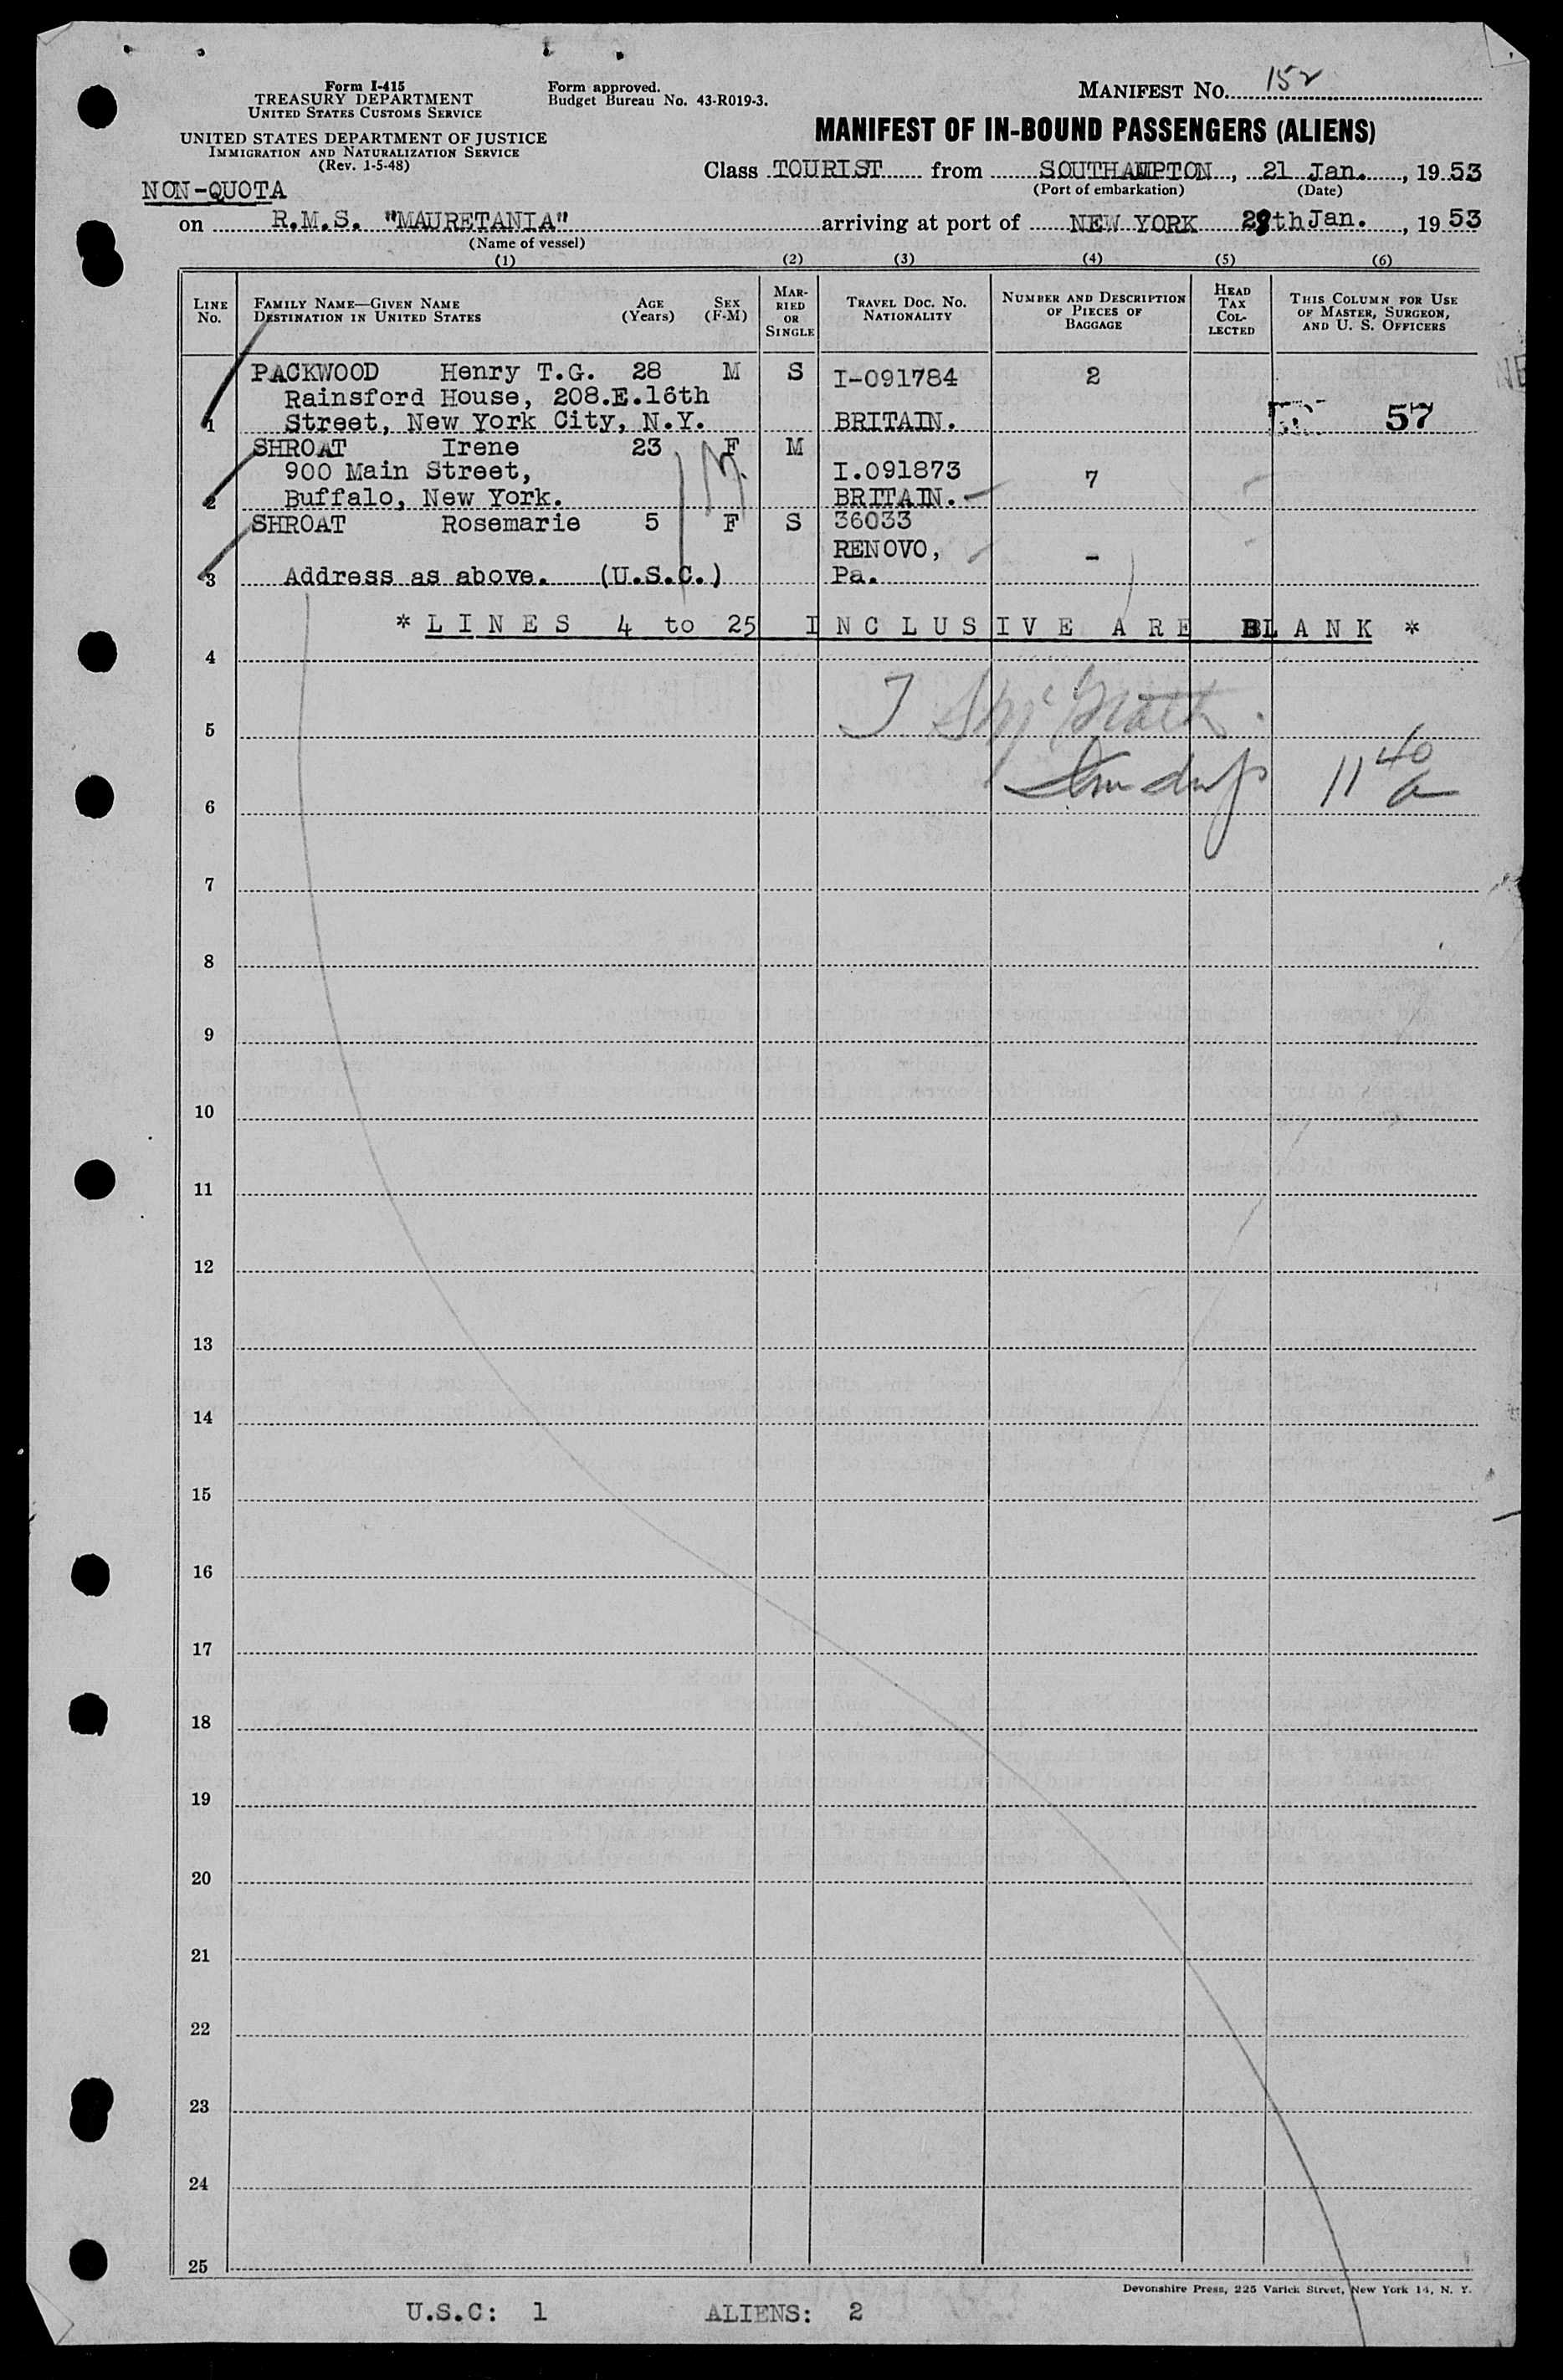 Form I-415
TREASURY DEPARTMENT
UNITED STATES CUSTOMS SERVICE
UNITED STATES DEPARTMENT OF JUSTICE
IMMIGRATION AND NATURALIZATION SERVICE
(Rev. 1-5-48)
Form approved.
Budget Bureau No. 43-R019-3.
MANIFEST NO. 152
MANIFEST OF IN-BOUND PASSENGERS (ALIENS)
Class TOURIST from SOUTHAMPTON, 21 Jan., 1953
(Port of embarkation) (Date)
NON-QUOTA
on R.M.S. "MAURETANIA" arriving at port of NEW YORK 28th Jan., 1953
(Name of vessel)
(1) (2) (3) (4) (5) (6)
LINE No.
FAMILY NAME—GIVEN NAME
DESTINATION IN UNITED STATES
AGE (Years)
SEX (F-M)
MARRIED OR SINGLE
TRAVEL DOC. NO. NATIONALITY
NUMBER AND DESCRIPTION OF PIECES OF BAGGAGE
HEAD TAX COLLECTED
THIS COLUMN FOR USE OF MASTER, SURGEON, AND U. S. OFFICERS
PACKWOOD Henry T.G. 28 M S I-091784 2
Rainsford House, 208.E.16th
1 Street, New York City, N.Y. BRITAIN. 57
SHROAT Irene 23 F M
900 Main Street, I.091873 7
2 Buffalo, New York. BRITAIN.
SHROAT Rosemarie 5 F S 36033
RENOVO, -
3 Address as above. (U.S.C.) Pa.
* LINES 4 to 25 INCLUSIVE ARE BLANK *
4
5
6 11 40 a
7
8
9
10
11
12
13
14
15
16
17
18
19
20
21
22
23
24
25
Devonshire Press, 225 Varick Street, New York 14, N. Y.
U.S.C: 1 ALIENS: 2